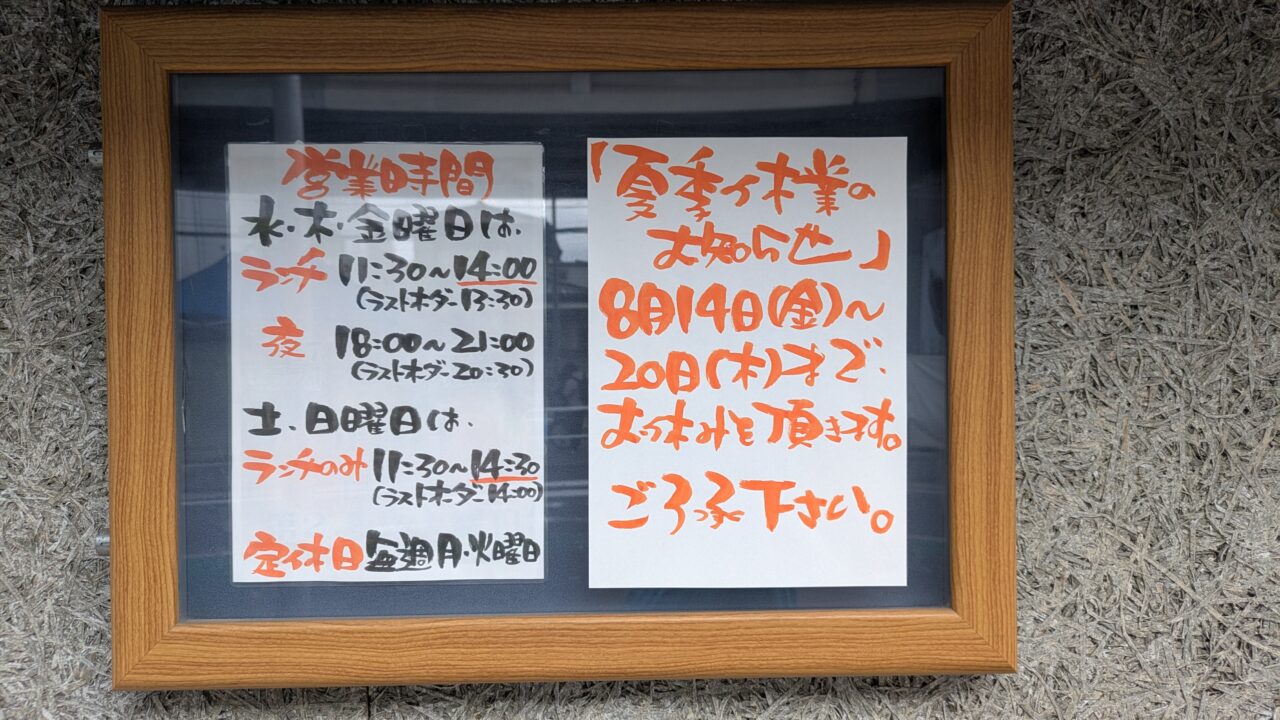 営業時間
水・木・金曜日は、
ランチ 11:30〜14:00
(ラストオーダー13:30)
夜 18:00〜21:00
(ラストオーダー20:30)
土、日曜日は、
ランチのみ 11:30〜14:30
(ラストオーダー14:00)
定休日 毎週月・火曜日
「夏季休業の
お知らせ」
8月14日(金)〜
20日(木)まで、
お休みを頂きます。
ご了承下さい。